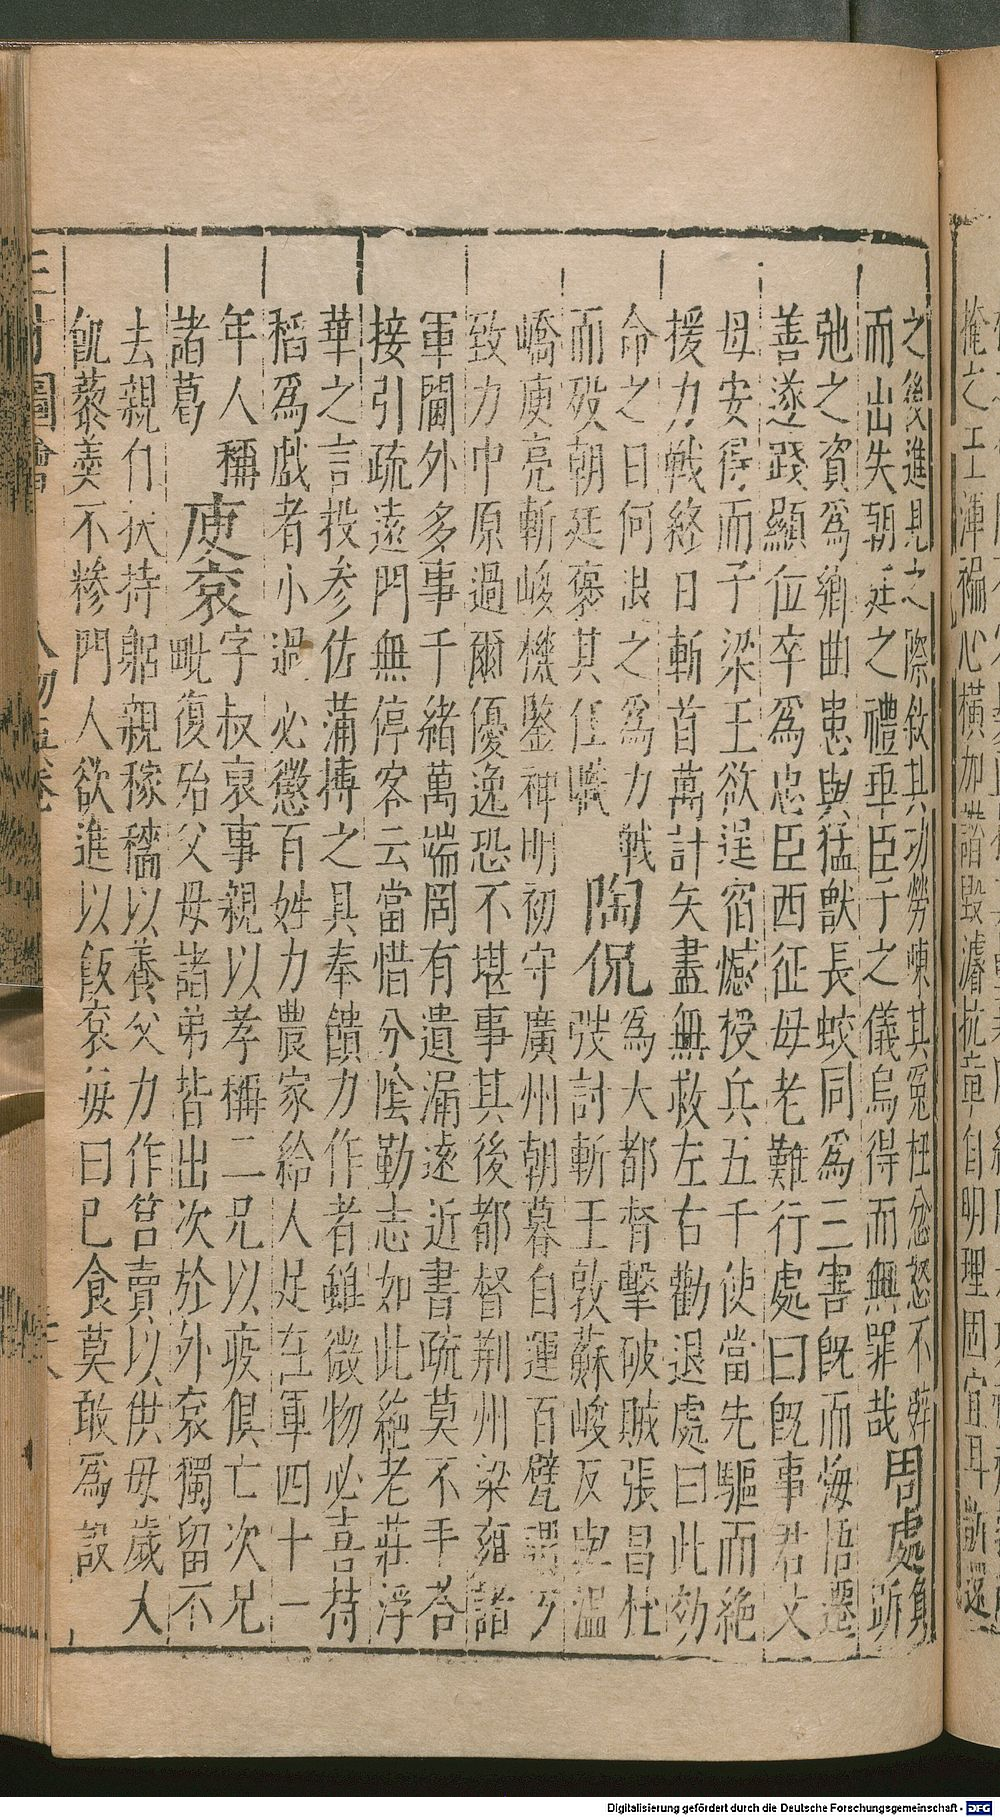 掩之工渾褊心橫加詆毀濬抗章自明理固宜耳
之後進見之際敘其功勞陳其冤枉忿怒不辭
而出失朝廷之禮乖臣子之儀烏得而無罪哉
周處
負
跅
弛之資爲鄉曲患與猛獸長蛟同爲三害旣而悔悟遷
善遂踐顯位卒爲忠臣西征母老難行處曰旣事君父
母安得而子梁王欲逞宿憾授兵五千使當先驅而絕
援力戰終日斬首萬計矢盡無救左右勸退處曰此効
命之日何退之爲力戰
而歿朝廷褒其任職
陶侃
爲大都督擊破賊張昌杜
弢討斬王敦蘇峻反與溫
嶠庾亮斬峻機鑒神明初守廣州朝暮自運百甓謂方
致力中原過爾優逸恐不堪事其後都督荊州梁雍諸
軍閫外多事千緒萬端罔有遺漏遠近書疏莫不手荅
接引疏遠門無停客云當惜分陰勤志如此絕老莊浮
華之言投參佐蒲博之具奉饋力作者雖微物必喜持
稻爲戲者小過必懲百姓力農家給人足在軍四十一
年人稱
諸葛
庾袞
字叔裒事親以孝稱二兄以疫俱亡次兄
毗復殆父母諸弟皆出次於外袞獨留不
去親自扶持躬親稼穡以養父力作筥賣以供母歲大
飢藜羹不糝門人欲進以飯袞每曰已食莫敢爲設
Digitalisierung gefördert durch die Deutsche Forschungsgemeinschaft - DFG